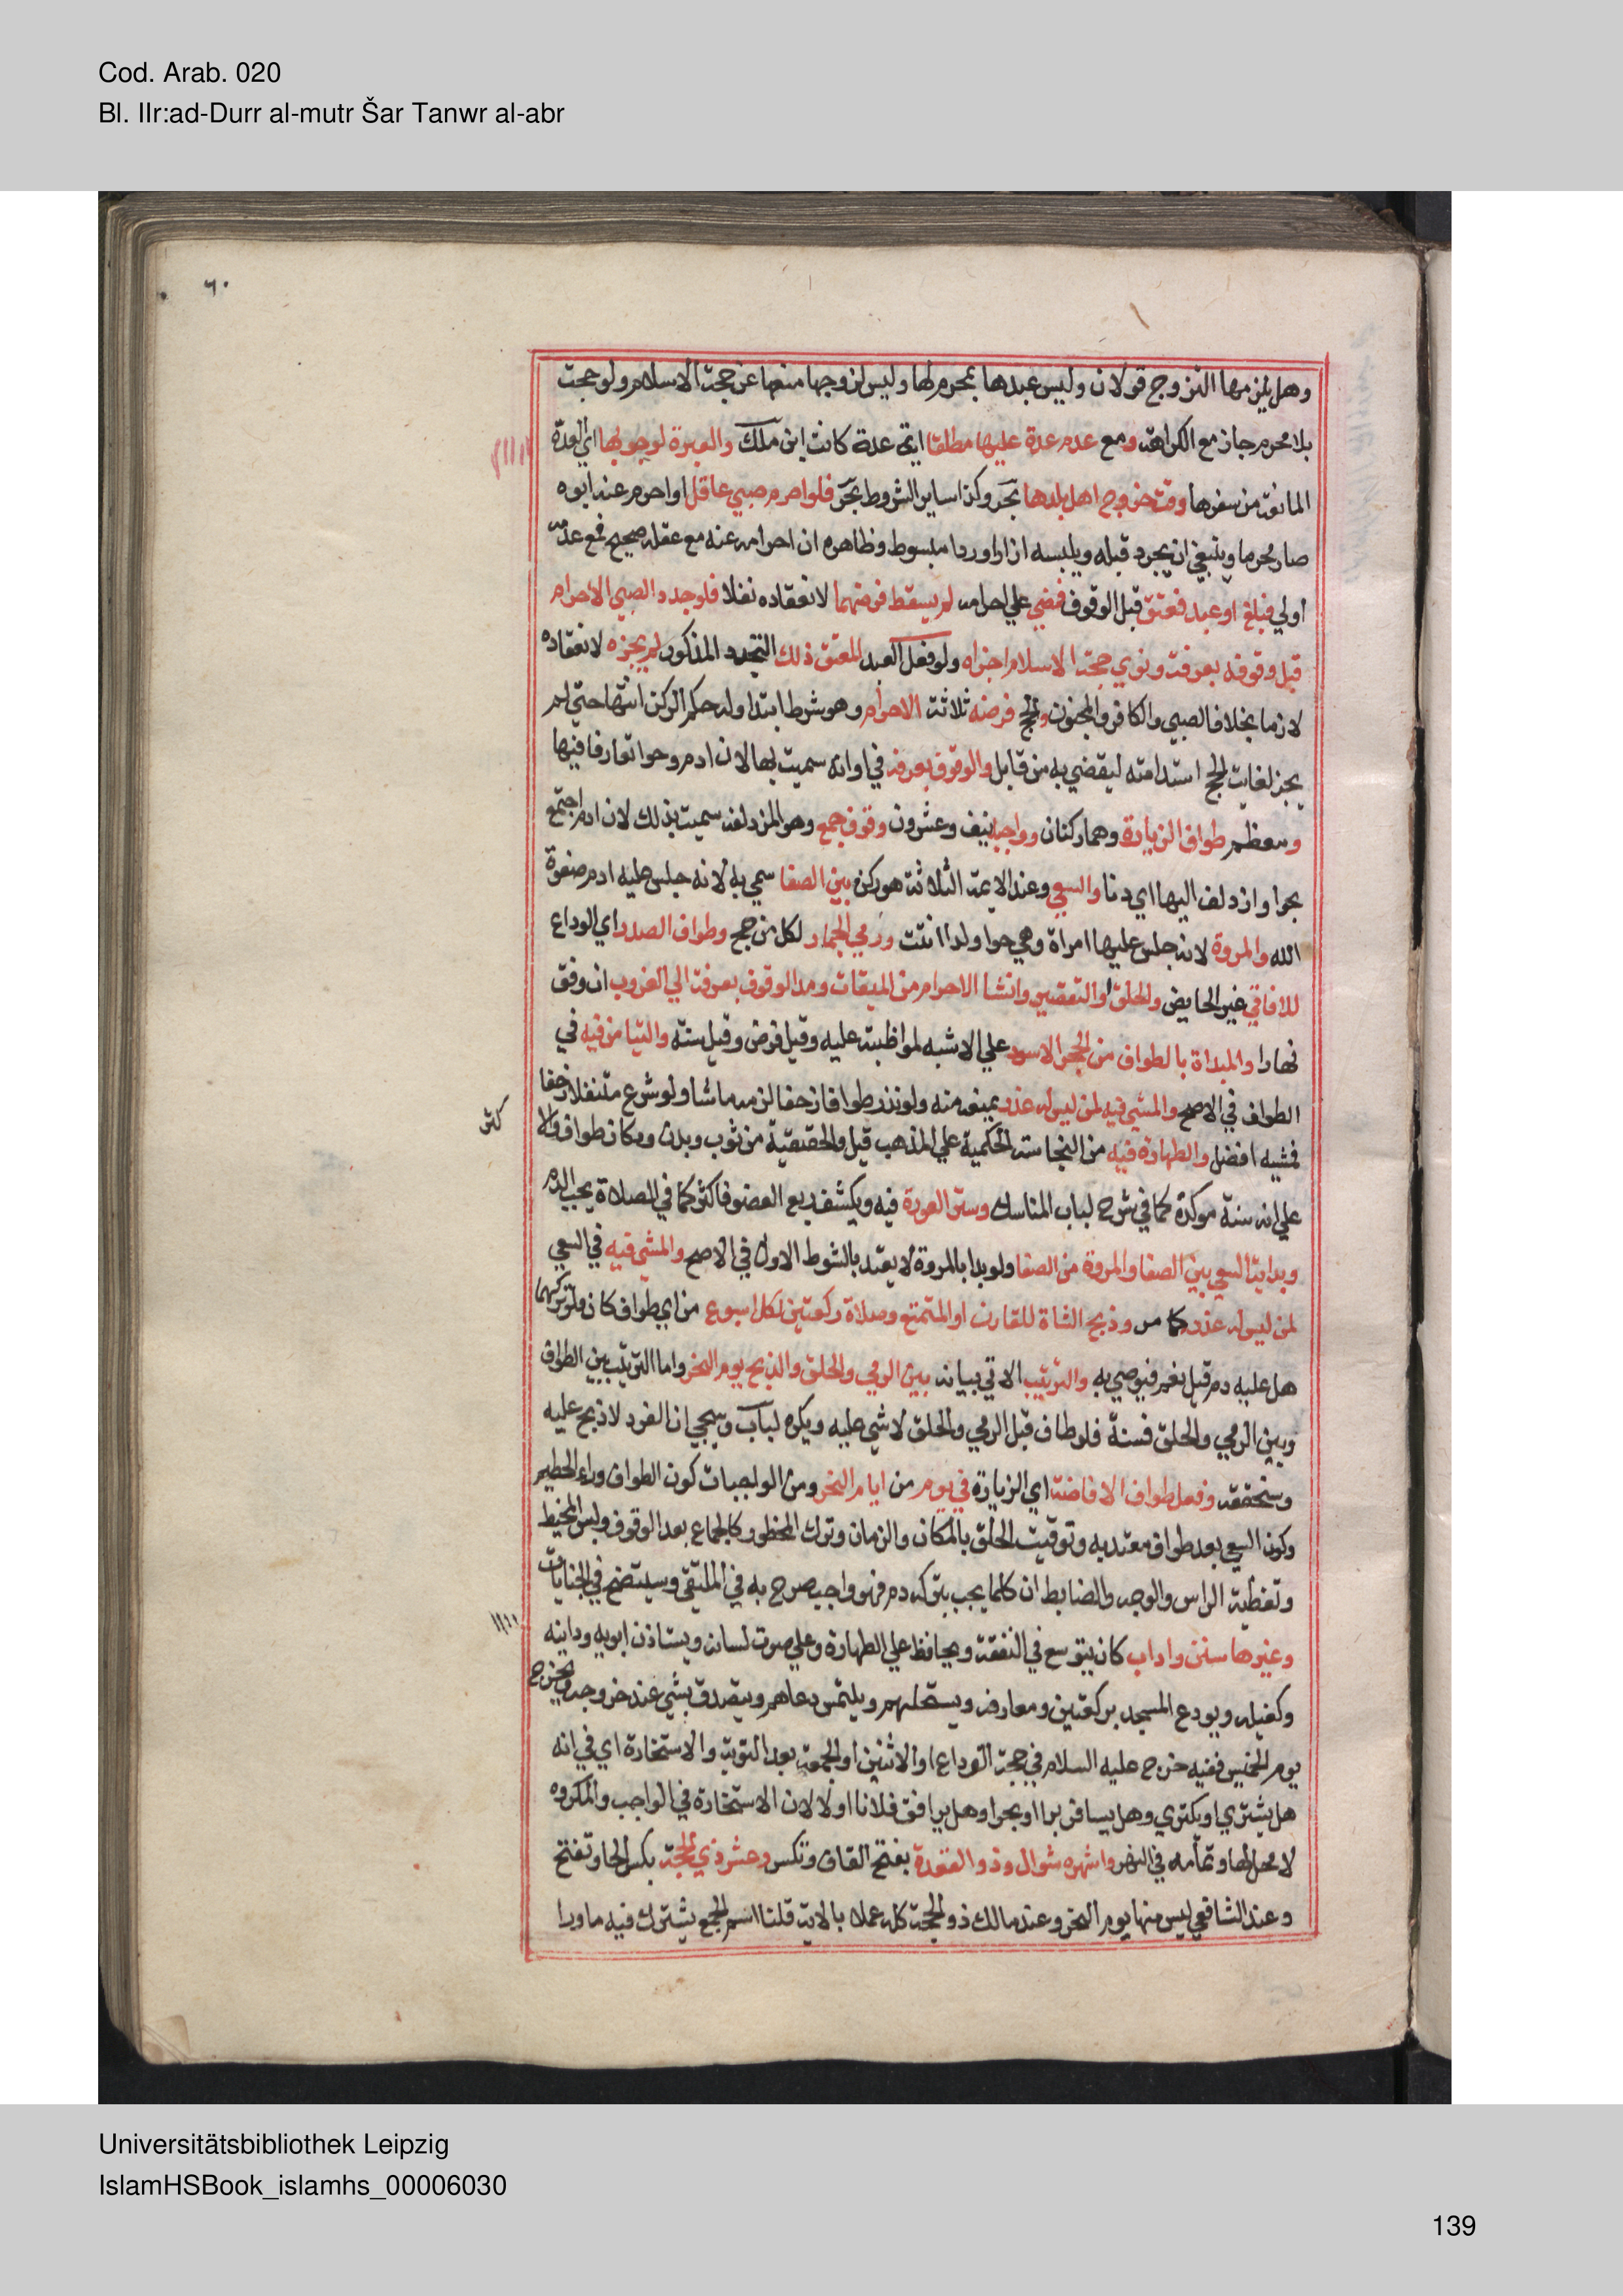 Cod. Arab. 020
Bl. IIr:ad-Durr al-mutr Šar Tanwr al-abr
٦٠
وهل يلزمها التزوج قولان وليس عبدها بمحرم لها وليس لزوجها منعها عن حجة الاسلام ولو حجت
بلا محرم جاز مع الكراهة ومع عدم عدة عليها مطلقا اية عدة كانت ابن ملك والعبرة لوجوبها اي العدة
المانعة من سفرها وقت خروج اهل بلدها بحر وكذا ساير الشروط بحر فلو احرم صبي عاقل او احرم عنه ابوه
صار محرما وينبغي ان يجرد قبله ويلبسه ازارا وردا مبسوط وظاهره ان احرامه عنه مع عقله صحيح فمع عدمه
اولي فبلغ او عبد فعتق قبل الوقوف فمضي علي احرامه لم يسقط فرضهما لانعقاده نفلا فلو جدد الصبي الاحرام
قبل وقوفه بعرفة ونوي حجة الاسلام اجزاه ولو فعل العبد المعتق ذلك التجدد المذكور لم يجزه لانعقاده
لازما بخلاف الصبي والكافر والمجنون والحج فرضه ثلاثة الاحرام وهو شرط ابتدا وله حكم الركن انتها حتي لم
يجز لفايت الحج استدامته ليقضي به من قابل والوقوف بعرفة في اوانه سميت بها لان ادم وحوا تعارفا فيها
ومعظم طواف الزيارة وهما ركنان وواجبه نيف وعشرون وقوف جمع وهو المزدلفة سميت بذلك لان ادم اجتمع
بحوا وازدلف اليها اي دنا والسعي وعند الايمة الثلاثة هو ركن بين الصفا سمي به لانه جلس عليه ادم صفوة
الله والمروة لانه جلس عليها امراة وهي حوا ولذا انثت ورمي الجمار لكل من حج وطواف الصدر اي الوداع
للافاقي غير الحايض والحلق او التقصير وانشا الاحرام من الميقات ومد الوقوف بعرفة الي الغروب ان وقف
نهارا والبداة بالطواف من الحجر الاسود علي الاشبه لمواظبته عليه وقيل فرض وقيل سنة والتيامن فيه في
الطواف في الاصح والمشي فيه لمن ليس له عذر يمنعه منه ولو نذر طوافا زحفا لزمه ماشيا ولو شرع متنفلا زحفا
فمشيه افضل والطهارة فيه من النجاسة الحكمية علي المذهب قيل والحقيقية من ثوب وبدن ومكان طواف والا
كثر
علي انه سنة موكدة كما في شرح لباب المناسك وستر العورة فيه وبكشف ربع العضو فاكثر كما في الصلاة يجب الدم
وبداية السعي بين الصفا والمروة من الصفا ولو بدا بالمروة لا يعتد بالشوط الاول في الاصح والمشي فيه في السعي
لمن ليس له عذر كما مر وذبح الشاة للقارن او المتمتع وصلاة ركعتين لكل اسبوع من اي طواف كان فلو تركهما
هل عليه دم قيل نعم فيوصي به والترتيب الاتي بيانه بين الرمي والحلق والذبح يوم النحر واما الترتيب بين الطواف
وبين الرمي والحلق فسنة فلو طاف قبل الرمي والحلق لا شي عليه ويكره لباب وسيجي ان المفرد لا ذبح عليه
وسنحققه وفعل طواف الافاضة اي الزيارة في يوم من ايام النحر ومن الواجبات كون الطواف وراء الحطيم
وكون السعي بعد طواف معتد به وتوقيت الحلق بالمكان والزمان وترك المحظور كالجماع بعد الوقوف ولبس المخيط
وتغطية الراس والوجه والضابط ان كلما يجب بتركه دم فهو واجب صرح به في الملتقي وسيتضح في الجنايات
وغيرها سنن واداب كان يتوسع في النفقة ويحافظ علي الطهارة وعلي صون لسانه ويستاذن ابويه وداينه
وكفيله ويودع المسجد بركعتين ومعارفه ويستحلهم ويلتمس دعاهم ويتصدق بشي عند خروجه ويخرج
يوم الخميس ففيه خرج عليه السلام في حجة الوداع او الاثنين او الجمعة بعد التوبة والاستخارة اي في انه
هل يشتري او يكتري وهل يسافر برا او بحرا وهل يرافق فلانا او لا لان الاستخارة في الواجب والمكروه
لا محل لها وتمامه في النهر واشهره شوال وذو القعدة بفتح القاف وتكسر وعشر ذي الحجة بكسر الحا وتفتح
وعند الشافعي ليس منها يوم النحر وعند مالك ذو الحجة كله عملا بالاية قلنا اسم الجمع يشترك فيه ما ورا
Universitätsbibliothek Leipzig
IslamHSBook_islamhs_00006030
139